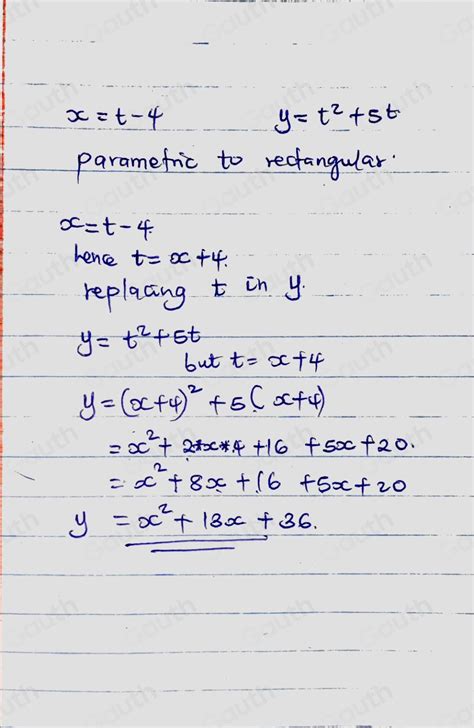 x = t - 4 y = t² + 5t
parametric to rectangular.
x = t - 4
hence t = x + 4.
replacing t in y.
y = t² + 5t
but t = x + 4
y = (x+4)² + 5(x+4)
= x² + 2*x*4 + 16 + 5x + 20.
= x² + 8x + 16 + 5x + 20
y = x² + 13x + 36.